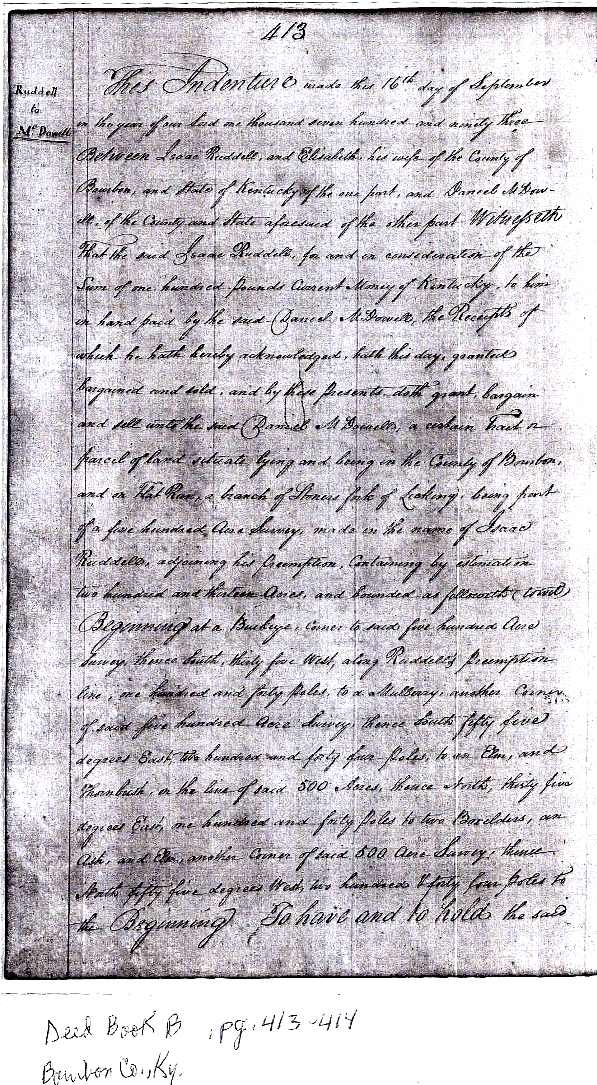 413
Ruddell
to
McDowell
This Indenture made this 16th day of September
in the year of our Lord one thousand seven hundred and ninety three
Between Isaac Ruddell, and Elisabeth, his wife of the County of
Bourbon, and State of Kentucky of the one part, and Daniel McDow-
ell, of the County and State aforesaid of the other part Witnesseth
That the said Isaac Ruddell, for and in consideration of the
Sum of one hundred pounds Current Money of Kentucky, to him
in hand paid by the said Daniel McDowell, the Receipts of
which he hath hereby acknowledged, hath this day, granted
bargained and sold, and by these presents doth grant, bargain
and sell unto the said Daniel McDowell, a certain Tract or
parcel of land situate lying and being in the County of Bourbon,
and on Flat Run, a branch of Stoners fork of Licking, being part
of a five hundred Acre Survey, made in the name of Isaac
Ruddell, adjoining his preemption, Containing by estimation
two hundred and thirteen Acres, and bounded as followeth (towit)
Beginning at a Buckeye, Corner to said five hundred Acre
Survey, thence South, thirty five West, along Ruddell's preemption
line, one hundred and forty poles, to a Mulberry, another Corner
of said five hundred Acre Survey, thence South fifty five
degrees East, two hundred and forty four poles, to an Elm, and
Thornbush, on the line of said 500 Acres, thence North, thirty five
degrees East, one hundred and forty Poles to two Boxelders, an
Ash, and Elm, another Corner of said 500 Acre Survey, thence
North fifty five degrees West, two hundred & forty four poles to
the Beginning To have and to hold the said
Deed Book B , pg. 413-414
Bourbon Co., Ky.